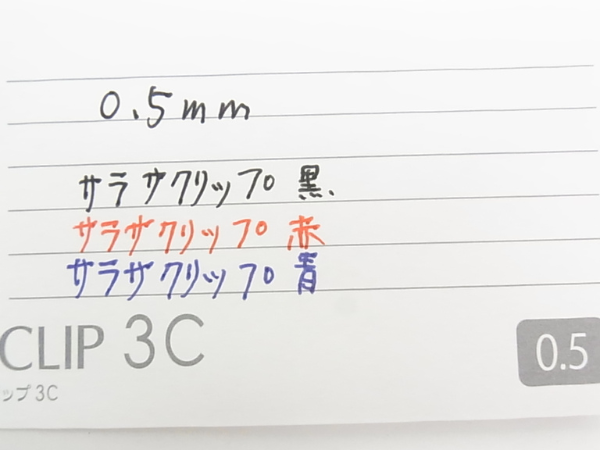 0.5mm
サラサクリップ 黒.
サラサクリップ 赤
サラサクリップ 青
CLIP 3C
ップ3C
0.5